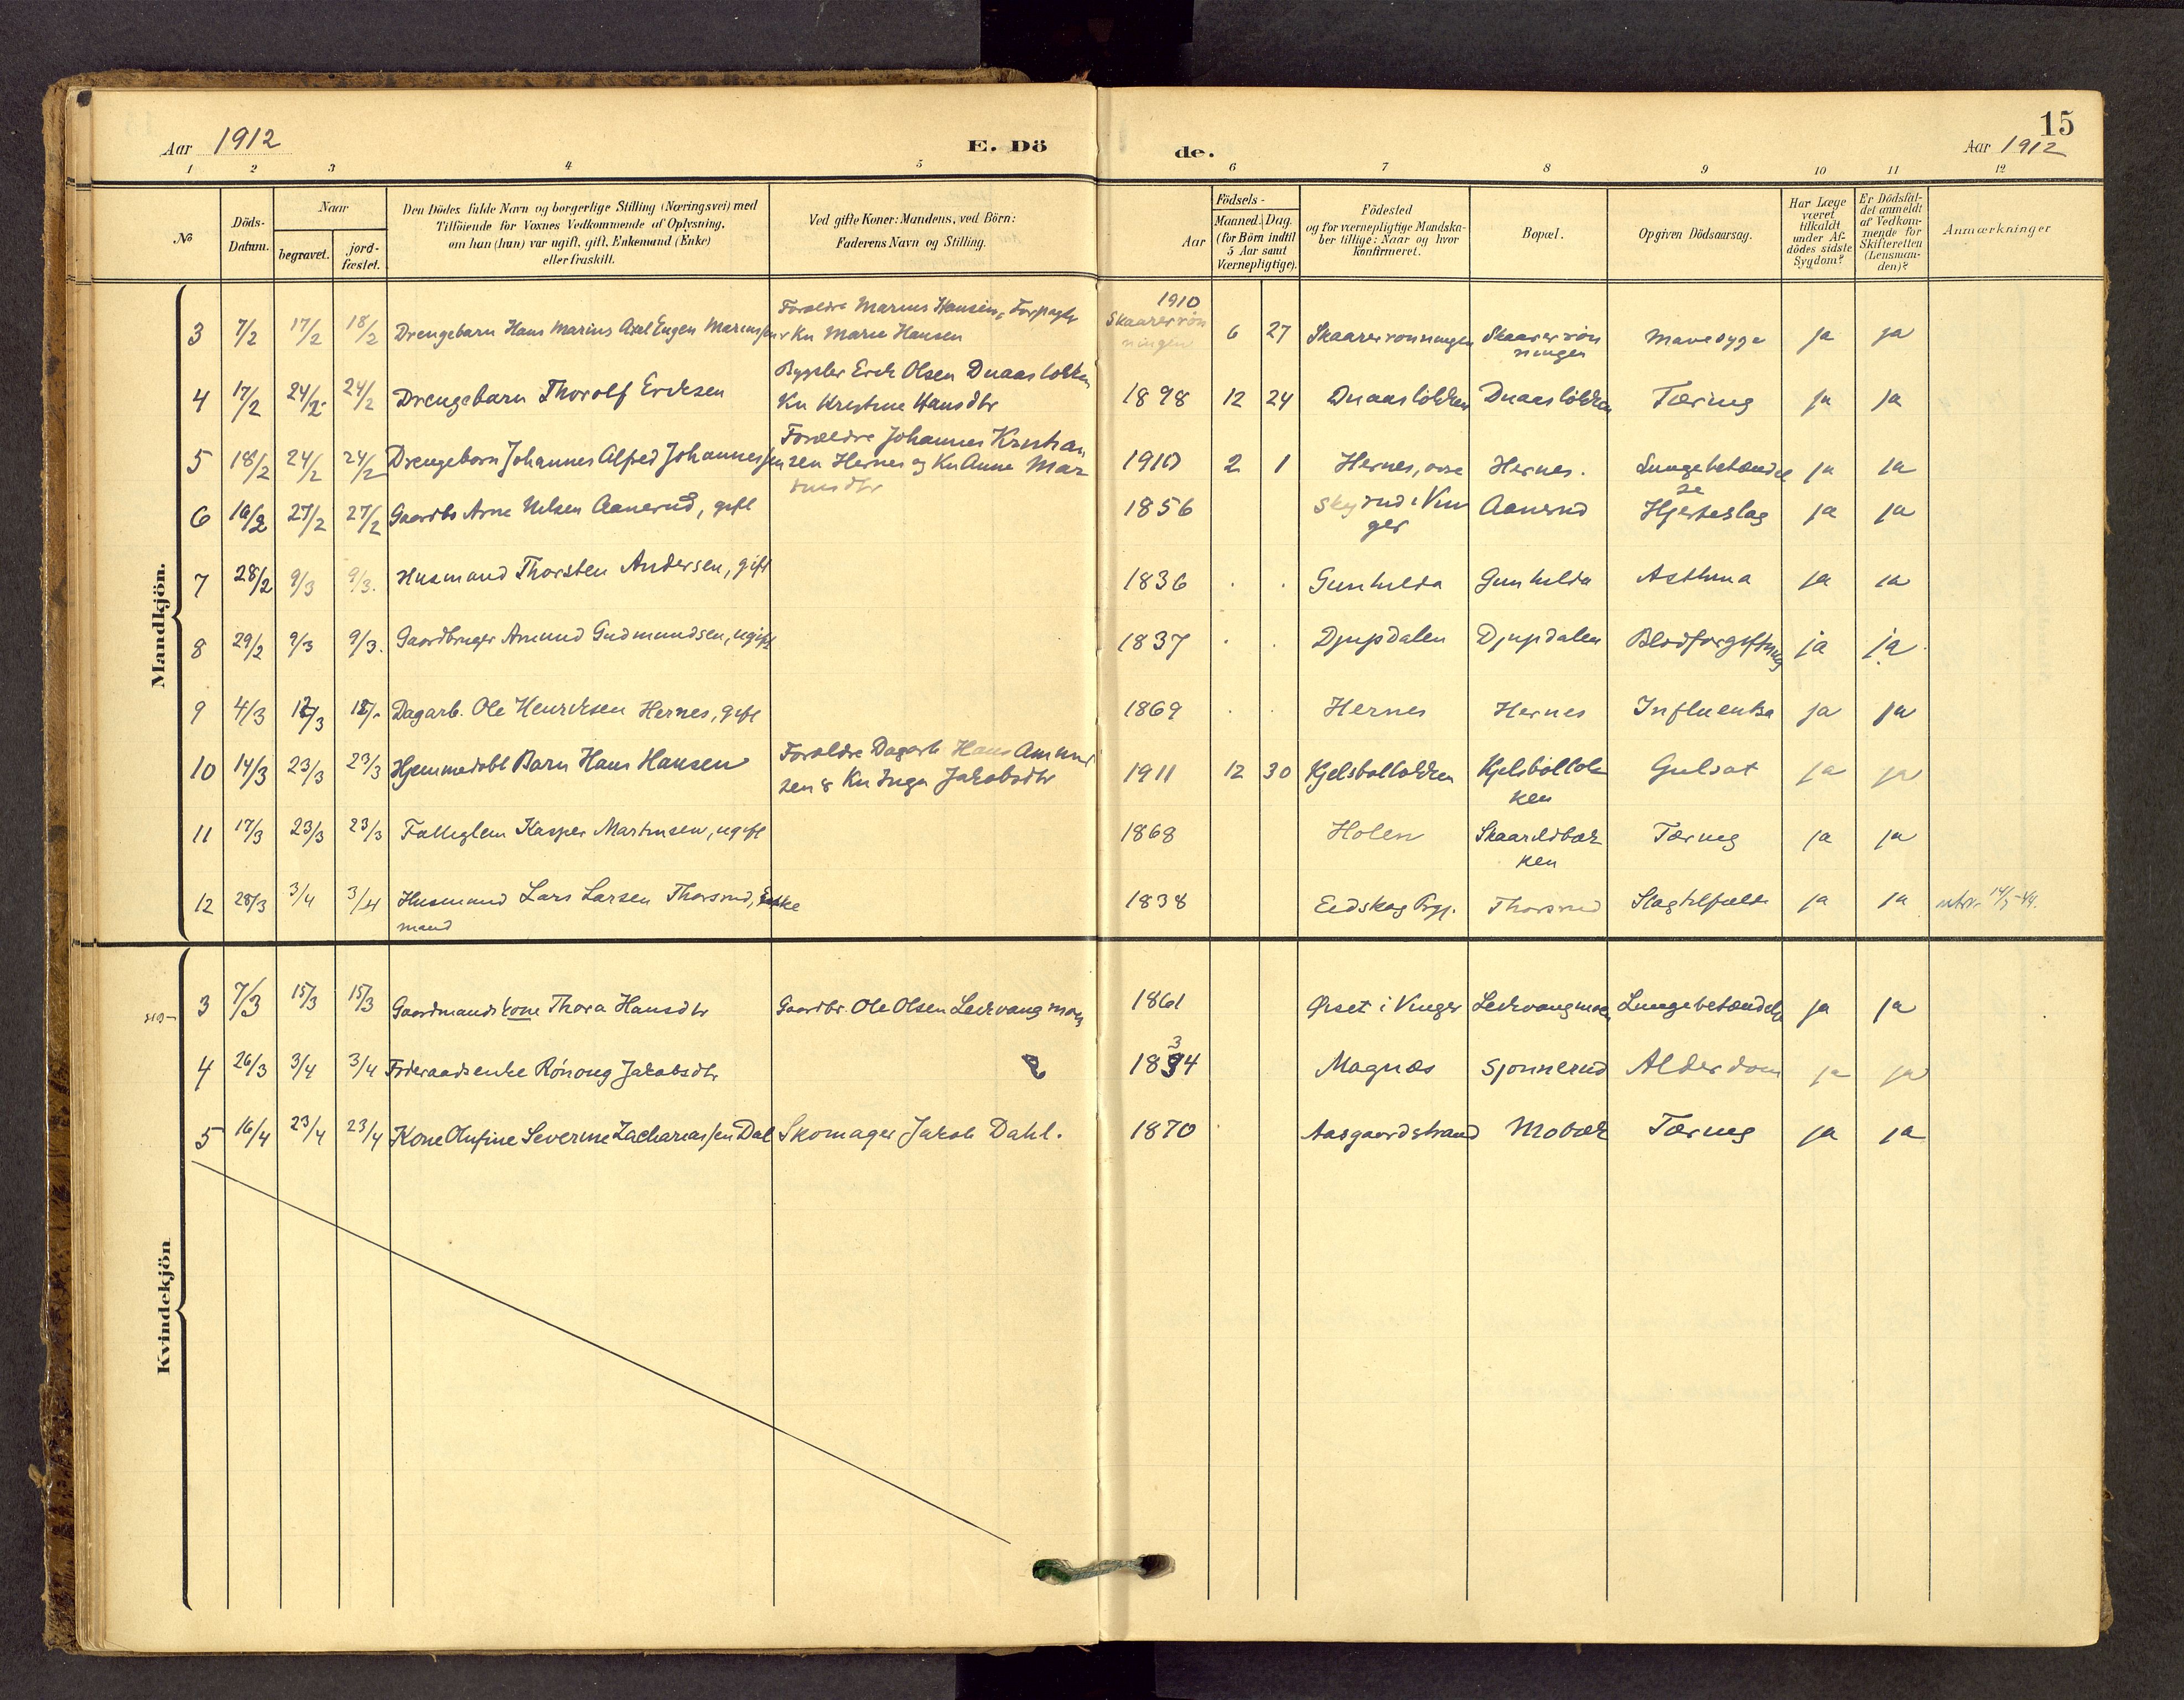 15
Aar 1912
E. Dö
de.
Aar 1912
1 2 3 4 5 6 7 8 9 10 11 12
No
Döds-
Datum.
Naar
begravet.
jord-
fæstet.
Den Dödes fulde Navn og borgerlige Stilling (Næringsvei) med
Tilföiende for Voxnes Vedkommende af Oplysning,
om han (hun) var ugift, gift, Enkemand (Enke)
eller fraskilt.
Ved gifte Koner: Mandens, ved Börn:
Faderens Navn og Stilling.
Aar
Födsels-
Maaned. Dag.
(for Börn indtil
5 Aar samt
Værnepligtige).
Födested
og for værnepligtige Mandska-
ber tillige: Naar og hvor
Konfirmeret.
Bopæl.
Opgiven Dödsaarsag.
Har Læge
været
tilkaldt
under Af-
dödes sidste
Sygdom?
Er Dödsfal-
det anmeldt
af Vedkom-
mende for
Skifteretten
(Lensman-
den)?
Anmærkninger
Mandkjön.
Forældre Marius Hansen, Forpagter 1910
3 7/2 17/2 18/2 Drengebarn Hans Marius Axel Eugen Mariussen Ku Marie Hansen Skaarerrön 6 27 Skaarerrönningen Skaarerrön Mavesyge ja ja
ningen ningen
Bygsler Erik Olsen Dnaaslökken
4 17/2 24/2 24/2 Drengebarn Thorolf Eriksen Ku Kristine Hansdtr 1898 12 24 Dnaaslökken Dnaaslökken Tæring ja ja
Forældre Johannes Kristian
5 18/2 24/2 24/2 Drengebarn Johannes Alfred Johannessen sen Hernes og Ku Anne Mar 1910 2 1 Hernes, Hernes. Lungebetændel ja ja
tinsdtr se
6 16/2 27/2 27/2 Gaardbr Arne Nilsen Aanerud, gift 1856 Skyrud i Vin Aanerud Hjerteslag ja ja
ger
7 28/2 9/3 9/3. Husmand Thorsten Andersen, gift 1836 Gunhilda Gunhilda Asthma ja ja
8 29/2 9/3 9/3. Gaardbruger Amund Gudmundsen, ugift 1837 Djupdalen Djupdalen Blodforgiftning ja ja
9 4/3 12/3 12/. Dagarb. Ole Henriksen Hernes, gift 1869 Hernes Hernes Influentsa ja ja
Forældre Dagarb Hans Amund
10 14/3 23/3 23/3 Hjemmedøbt Barn Hans Hansen sen & Ku Inga Jakobsdtr 1911 12 30 Kjelsböllökken Kjelsböllök Gulsot ja ja
ken
11 17/3 23/3 23/3 Fattiglem Kasper Martinsen, ugift 1868 Holen Skaarildbæk Tæring ja ja
ken
12 28/3 3/4 3/4 Husmand Lars Larsen Thorsrud, Enke 1838 Eidskog Pgj. Thorsrud Slagtilfælde ja ja
mand
Kvindekjön
3 7/3 15/3 15/3 Gaardmandskone Thora Hansdtr Gaardbr. Ole Olsen Leirvangmoen 1861 Ørset i Vinger Leirvangmoen Lungebetændelse ja ja
3
4 26/3 3/4 3/4 Föderaadsenke Rönoug Jakobsdtr 1834 Magnæs Sjonnerud Alderdom ja ja
5 16/4 23/4 23/4 Kone Olufine Severine Zachariassen Dal Skomager Jakob Dahl. 1870 Aasgaardstrand Mobæk Tæring ja ja